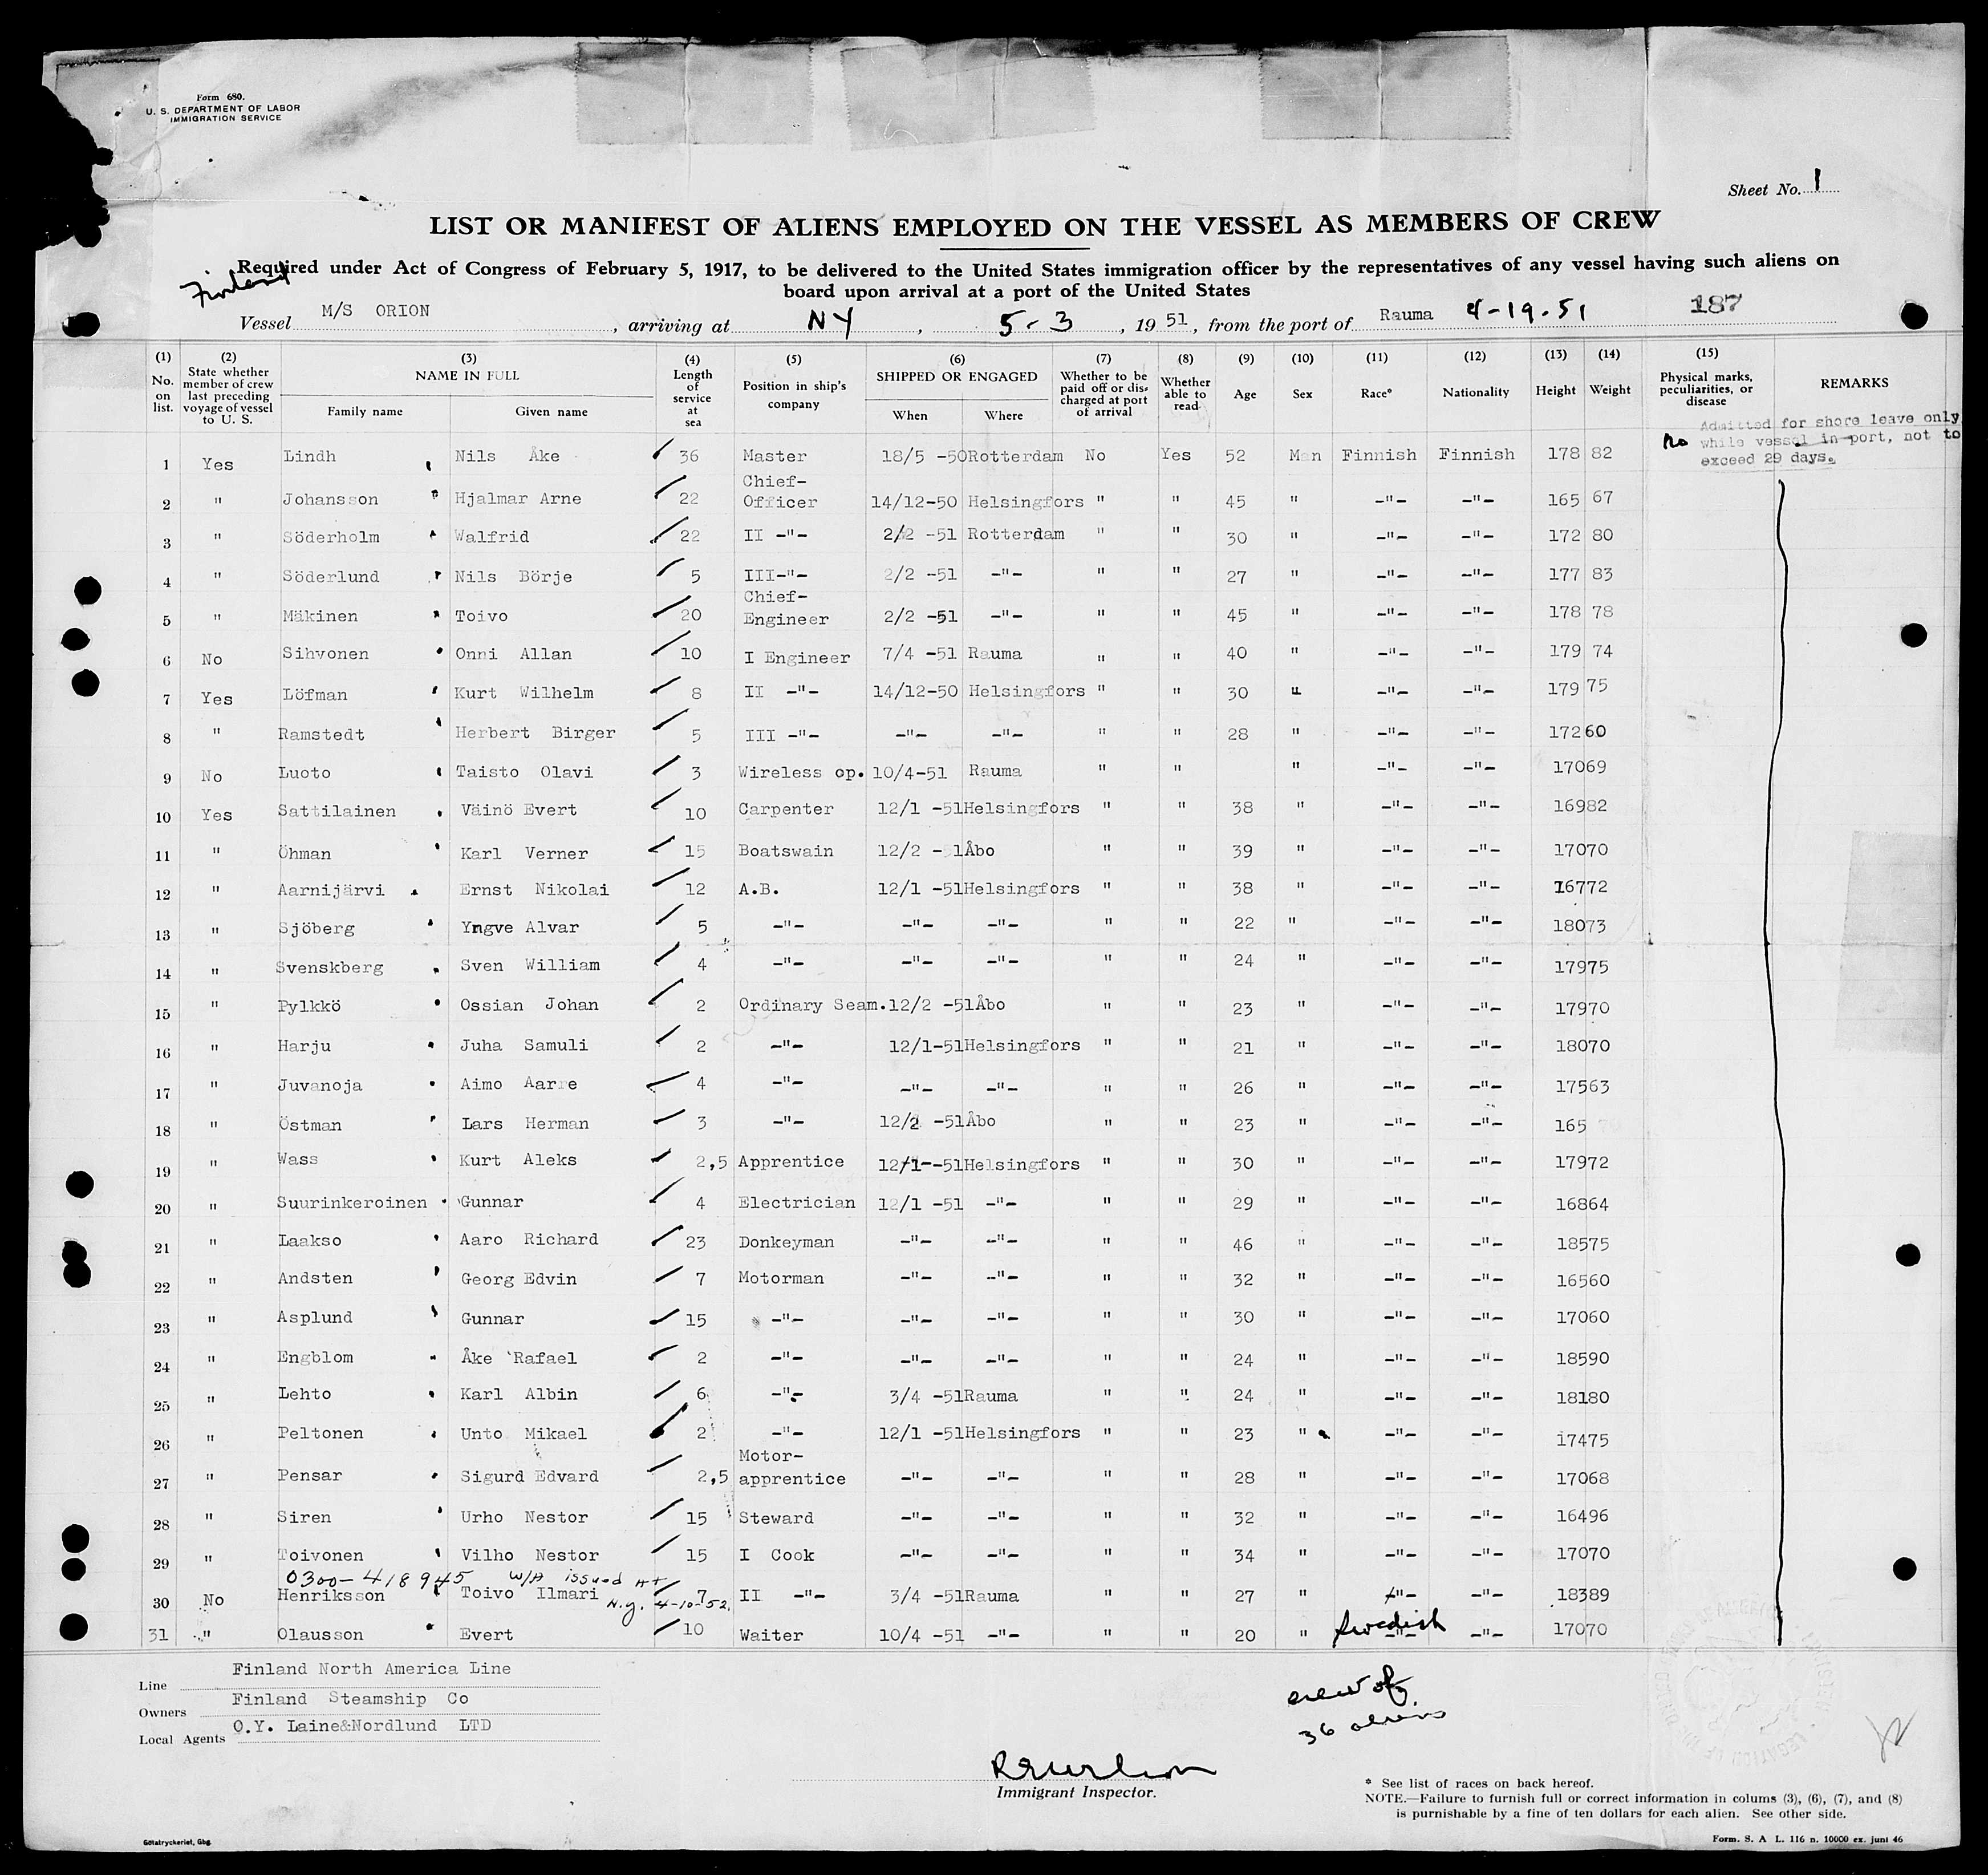 Form 680.
U. S. DEPARTMENT OF LABOR
IMMIGRATION SERVICE
Sheet No. 1
LIST OR MANIFEST OF ALIENS EMPLOYED ON THE VESSEL AS MEMBERS OF CREW
Required under Act of Congress of February 5, 1917, to be delivered to the United States immigration officer by the representatives of any vessel having such aliens on
board upon arrival at a port of the United States
Finland
Vessel M/S ORION, arriving at NY, 5-3, 19 51, from the port of Rauma 4-19-51 187
(1) No. on list. (2) State whether member of crew last preceding voyage of vessel to U. S. (3) NAME IN FULL Family name Given name (4) Length of service at sea (5) Position in ship's company (6) SHIPPED OR ENGAGED When Where (7) Whether to be paid off or dis- charged at port of arrival (8) Whether able to read (9) Age (10) Sex (11) Race* (12) Nationality (13) Height (14) Weight (15) Physical marks, peculiarities, or disease REMARKS
No Admitted for shore leave only
while vessel in port, not to
exceed 29 days.
1 Yes Lindh Nils Åke 36 Master 18/5 -50 Rotterdam No Yes 52 Man Finnish Finnish 178 82
2 " Johansson Hjalmar Arne 22 Chief-Officer 14/12-50 Helsingfors " " 45 " -"- -"- 165 67
3 " Söderholm Walfrid 22 II -"- 2/2 -51 Rotterdam " " 30 " -"- -"- 172 80
4 " Söderlund Nils Börje 5 III-"- 2/2 -51 -"- " " 27 " -"- -"- 177 83
5 " Mäkinen Toivo 20 Chief-Engineer 2/2 -51 -"- " " 45 " -"- -"- 178 78
6 No Sihvonen Onni Allan 10 I Engineer 7/4 -51 Rauma " " 40 " -"- -"- 179 74
7 Yes Löfman Kurt Wilhelm 8 II -"- 14/12-50 Helsingfors " " 30 " -"- -"- 179 75
8 " Ramstedt Herbert Birger 5 III -"- -"- -"- " " 28 " -"- -"- 172 60
9 No Luoto Taisto Olavi 3 Wireless op. 10/4-51 Rauma " " " -"- -"- 170 69
10 Yes Sattilainen Väinö Evert 10 Carpenter 12/1 -51 Helsingfors " " 38 " -"- -"- 169 82
11 " Öhman Karl Verner 15 Boatswain 12/2 -51 Åbo " " 39 " -"- -"- 170 70
12 " Aarnijärvi Ernst Nikolai 12 A.B. 12/1 -51 Helsingfors " " 38 " -"- -"- 167 72
13 " Sjöberg Yngve Alvar 5 -"- -"- -"- " " 22 " -"- -"- 180 73
14 " Svenskberg Sven William 4 -"- -"- -"- " " 24 " -"- -"- 179 75
15 " Pylkkö Ossian Johan 2 Ordinary Seam. 12/2 -51 Åbo " " 23 " -"- -"- 179 70
16 " Harju Juha Samuli 2 -"- 12/1-51 Helsingfors " " 21 " -"- -"- 180 70
17 " Juvanoja Aimo Aarre 4 -"- -"- -"- " " 26 " -"- -"- 175 63
18 " Östman Lars Herman 3 -"- 12/2 -51 Åbo " " 23 " -"- -"- 165
19 " Wass Kurt Aleks 2,5 Apprentice 12/1--51 Helsingfors " " 30 " -"- -"- 179 72
20 " Suurinkeroinen Gunnar 4 Electrician 12/1 -51 -"- " " 29 " -"- -"- 168 64
21 " Laakso Aaro Richard 23 Donkeyman -"- -"- " " 46 " -"- -"- 185 75
22 " Andsten Georg Edvin 7 Motorman -"- -"- " " 32 " -"- -"- 165 60
23 " Asplund Gunnar 15 -"- -"- -"- " " 30 " -"- -"- 170 60
24 " Engblom Åke Rafael 2 -"- -"- -"- " " 24 " -"- -"- 185 90
25 " Lehto Karl Albin 6 -"- 3/4 -51 Rauma " " 24 " -"- -"- 181 80
26 " Peltonen Unto Mikael 2 -"- 12/1 -51 Helsingfors " " 23 " -"- -"- 174 75
27 " Pensar Sigurd Edvard 2,5 Motor-apprentice -"- -"- " " 28 " -"- -"- 170 68
28 " Siren Urho Nestor 15 Steward -"- -"- " " 32 " -"- -"- 164 96
29 " Toivonen Vilho Nestor 15 I Cook -"- -"- " " 34 " -"- -"- 170 70
0300-418945 W/A issued At
N.Y. 4-10-52
30 No Henriksson Toivo Ilmari 7 II -"- 3/4 -51 Rauma " " 27 " -"- -"- 183 89
31 " Olausson Evert 10 Waiter 10/4 -51 -"- " " 20 " Swedish -"- -"- 170 70
Line Finland North America Line
Owners Finland Steamship Co
Local Agents O.Y. Laine&Nordlund LTD
crew of
36 aliens
Immigrant Inspector.
* See list of races on back hereof.
NOTE.—Failure to furnish full or correct information in colums (3), (6), (7), and (8)
is punishable by a fine of ten dollars for each alien. See other side.
Götatryckeriet, Gbg.
Form. S. A L. 116 n. 10000 ex. juni 46